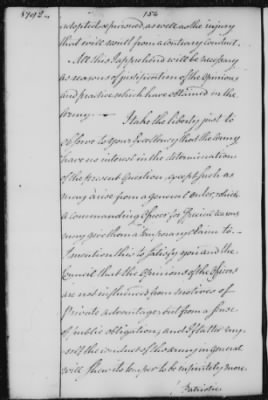 1792
154
adopted & pursued as well as the injury
that will result from a contrary Conduct.
All this I apprehend will be necessary
as reasons of justification of the Opinions
and practice which have obtained in the
Army. —
I take the liberty just to
observe to your Excellency that the Army
have no interest in the determination
of the present Question except such as
may arise from a general Order, which
a commanding Officer for special reasons
may give them a temporary claim to. —
I mention this to satisfy you and the
Council that the Opinions of the Officers
are not influenced from motives of
private advantage but from a sense
of public obligation, and I flatter my-
self the conduct of the army in general
will shew its temper to be infinitely more
Patriotic